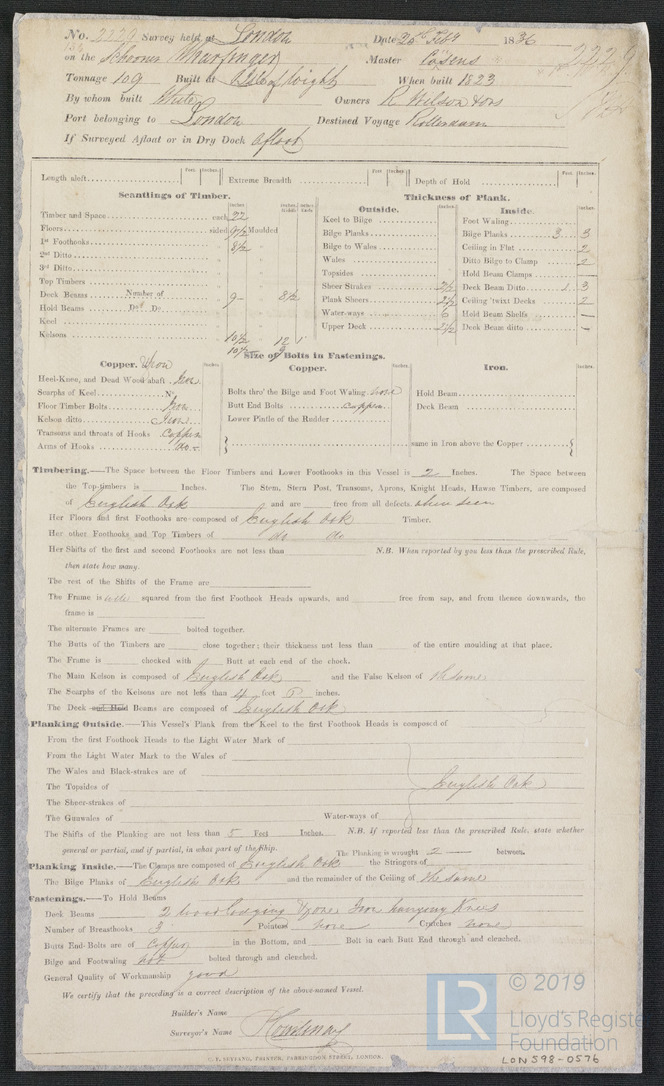 No. 2229 Survey held at London Date 25th Feby 1836
on the Schooner Wharfinger Master Cosens
Tonnage 109 Built at Isle of Wight When built 1823
By whom built White Owners R. Wilson & ors
Port belonging to London Destined Voyage Rotterdam
If Surveyed Afloat or in Dry Dock Afloat
Length aloft Feet Inches Extreme Breadth Feet Inches Depth of Hold Feet Inches
Scantlings of Timber.
Timber and Space each 22
Floors sided 9 1/2 Moulded
1st Foothooks 8 1/2
2nd Ditto
3rd Ditto
Top Timbers
Deck Beams Number of 9 8 1/2
Hold Beams Do. Do.
Keel
Kelsons 10 1/2 12
Thickness of Plank.
Outside.
Keel to Bilge
Bilge Planks
Bilge to Wales
Wales
Topsides
Sheer Strakes 2 1/2
Plank Sheers 2 1/2
Water-ways 6
Upper Deck 2 1/2
Inside.
Foot Waling
Bilge Planks 3 3
Ceiling in Flat 2
Ditto Bilge to Clamp 2
Hold Beam Clamps —
Deck Beam Ditto 1 3
Ceiling 'twixt Decks 2
Hold Beam Shelfs —
Deck Beam ditto —
Size of Bolts in Fastenings.
Copper. Iron
Heel-Knee, and Dead Wood abaft Iron
Scarphs of Keel No
Floor Timber Bolts Iron
Kelson ditto Iron
Transoms and throats of Hooks Copper
Arms of Hooks Do.
Copper.
Bolts thro' the Bilge and Foot Waling none
Butt End Bolts Copper
Lower Pintle of the Rudder
Iron.
Hold Beam
Deck Beam
same in Iron above the Copper
Timbering.—The Space between the Floor Timbers and Lower Foothooks in this Vessel is 2 Inches. The Space between
the Top-timbers is Inches. The Stem, Stern Post, Transoms, Aprons, Knight Heads, Hawse Timbers, are composed
of English Oak and are free from all defects when seen
Her Floors and first Foothooks are composed of English Oak Timber.
Her other Foothooks and Top Timbers of do do
Her Shifts of the first and second Foothooks are not less than N.B. When reported by you less than the prescribed Rule,
then state how many.
The rest of the Shifts of the Frame are
The Frame is well squared from the first Foothook Heads upwards, and free from sap, and from thence downwards, the
frame is
The alternate Frames are bolted together.
The Butts of the Timbers are close together; their thickness not less than of the entire moulding at that place.
The Frame is checked with Butt at each end of the chock.
The Main Kelson is composed of English Oak and the False Kelson of the same
The Scarphs of the Kelsons are not less than 4 feet 6 inches.
The Deck and Hold Beams are composed of English Oak
Planking Outside.—This Vessel's Plank from the Keel to the first Foothook Heads is composed of
From the first Foothook Heads to the Light Water Mark of
From the Light Water Mark to the Wales of
The Wales and Black-strakes are of
The Topsides of English Oak
The Sheer-strakes of
The Gunwales of Water-ways of
The Shifts of the Planking are not less than 5 Feet Inches. N.B. If reported less than the prescribed Rule, state whether
general or partial, and if partial, in what part of the Ship. The Planking is wrought 2 between.
Planking Inside.—The Clamps are composed of English Oak the Stringers of
The Bilge Planks of English Oak and the remainder of the Ceiling of the same
Fastenings.—To Hold Beams
Deck Beams 2 wood lodging & one Iron hanging Knees
Number of Breasthooks 3 Pointers none Crutches none
Butts End-Bolts are of Copper in the Bottom, and Bolt in each Butt End through and clenched.
Bilge and Footwaling not bolted through and clenched.
General Quality of Workmanship good
We certify that the preceding is a correct description of the above-named Vessel.
Builder's Name
Surveyor's Name
C. F. SEYFANG, PRINTER, FARRINGDON STREET, LONDON.
LR © 2019
Lloyd's Register
Foundation
LON598-0576